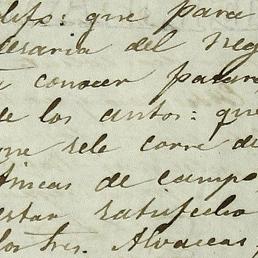 difs: que para
esaria del neg
a conocer pasar
de los autos: que
que sele corre de
fincas de campo
estar satisfecho
los tres. Alvaceas